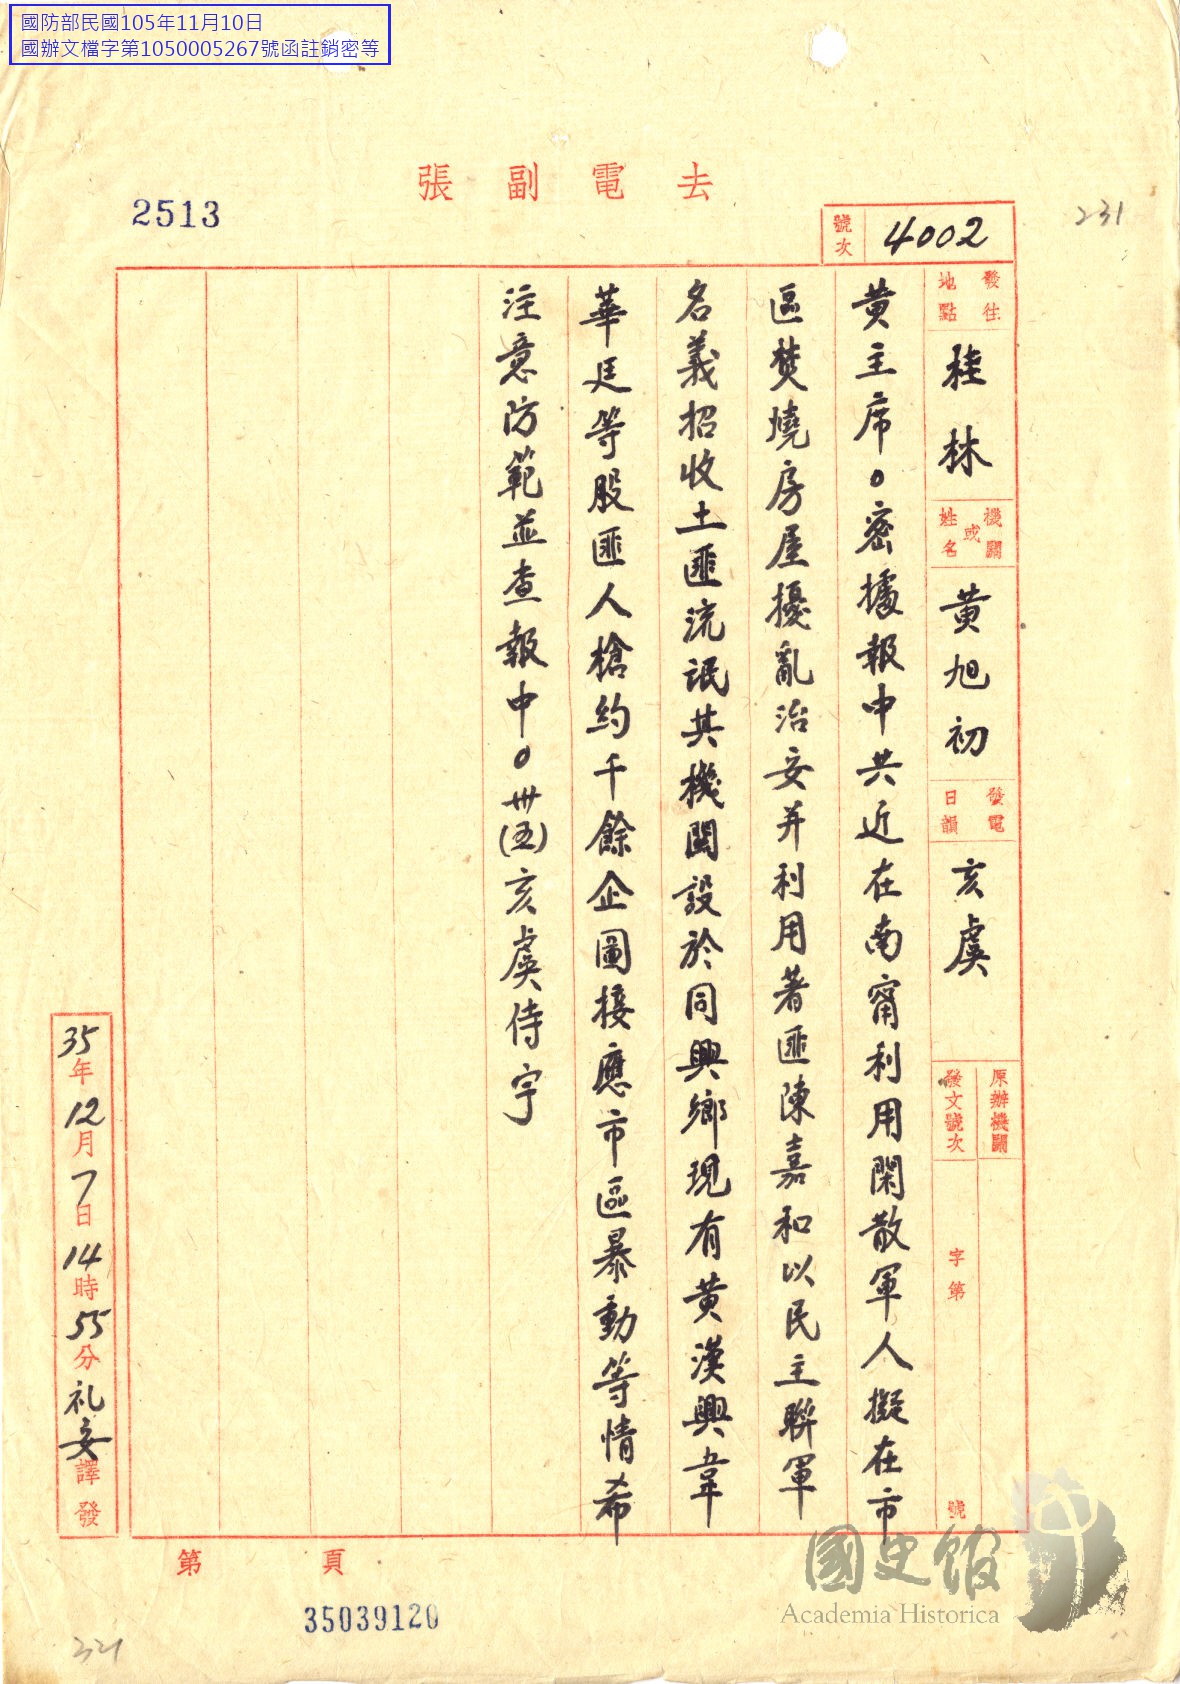 國防部民國105年11月10日
國辦文檔字第1050005267號函註銷密等
去電副張
2513
231
號次 4002
發往地點 桂林 機關或姓名 黃旭初 發電日韻 亥虞 原辦機關 發文號次 字第 號
黃主席。密據報中共近在南甯利用閑散軍人擬在市
區焚燒房屋擾亂治安并利用著匪陳嘉和以民主聯軍
名義招收土匪流氓其機関設於同興鄉現有黃漢興韋
華廷等股匪人槍約千餘企圖接應市區暴動等情希
注意防範並查報中。卅(五)亥虞侍宇
35年12月7日14時55分礼安譯發
第 頁
35039120
321
國史館
Academia Historica